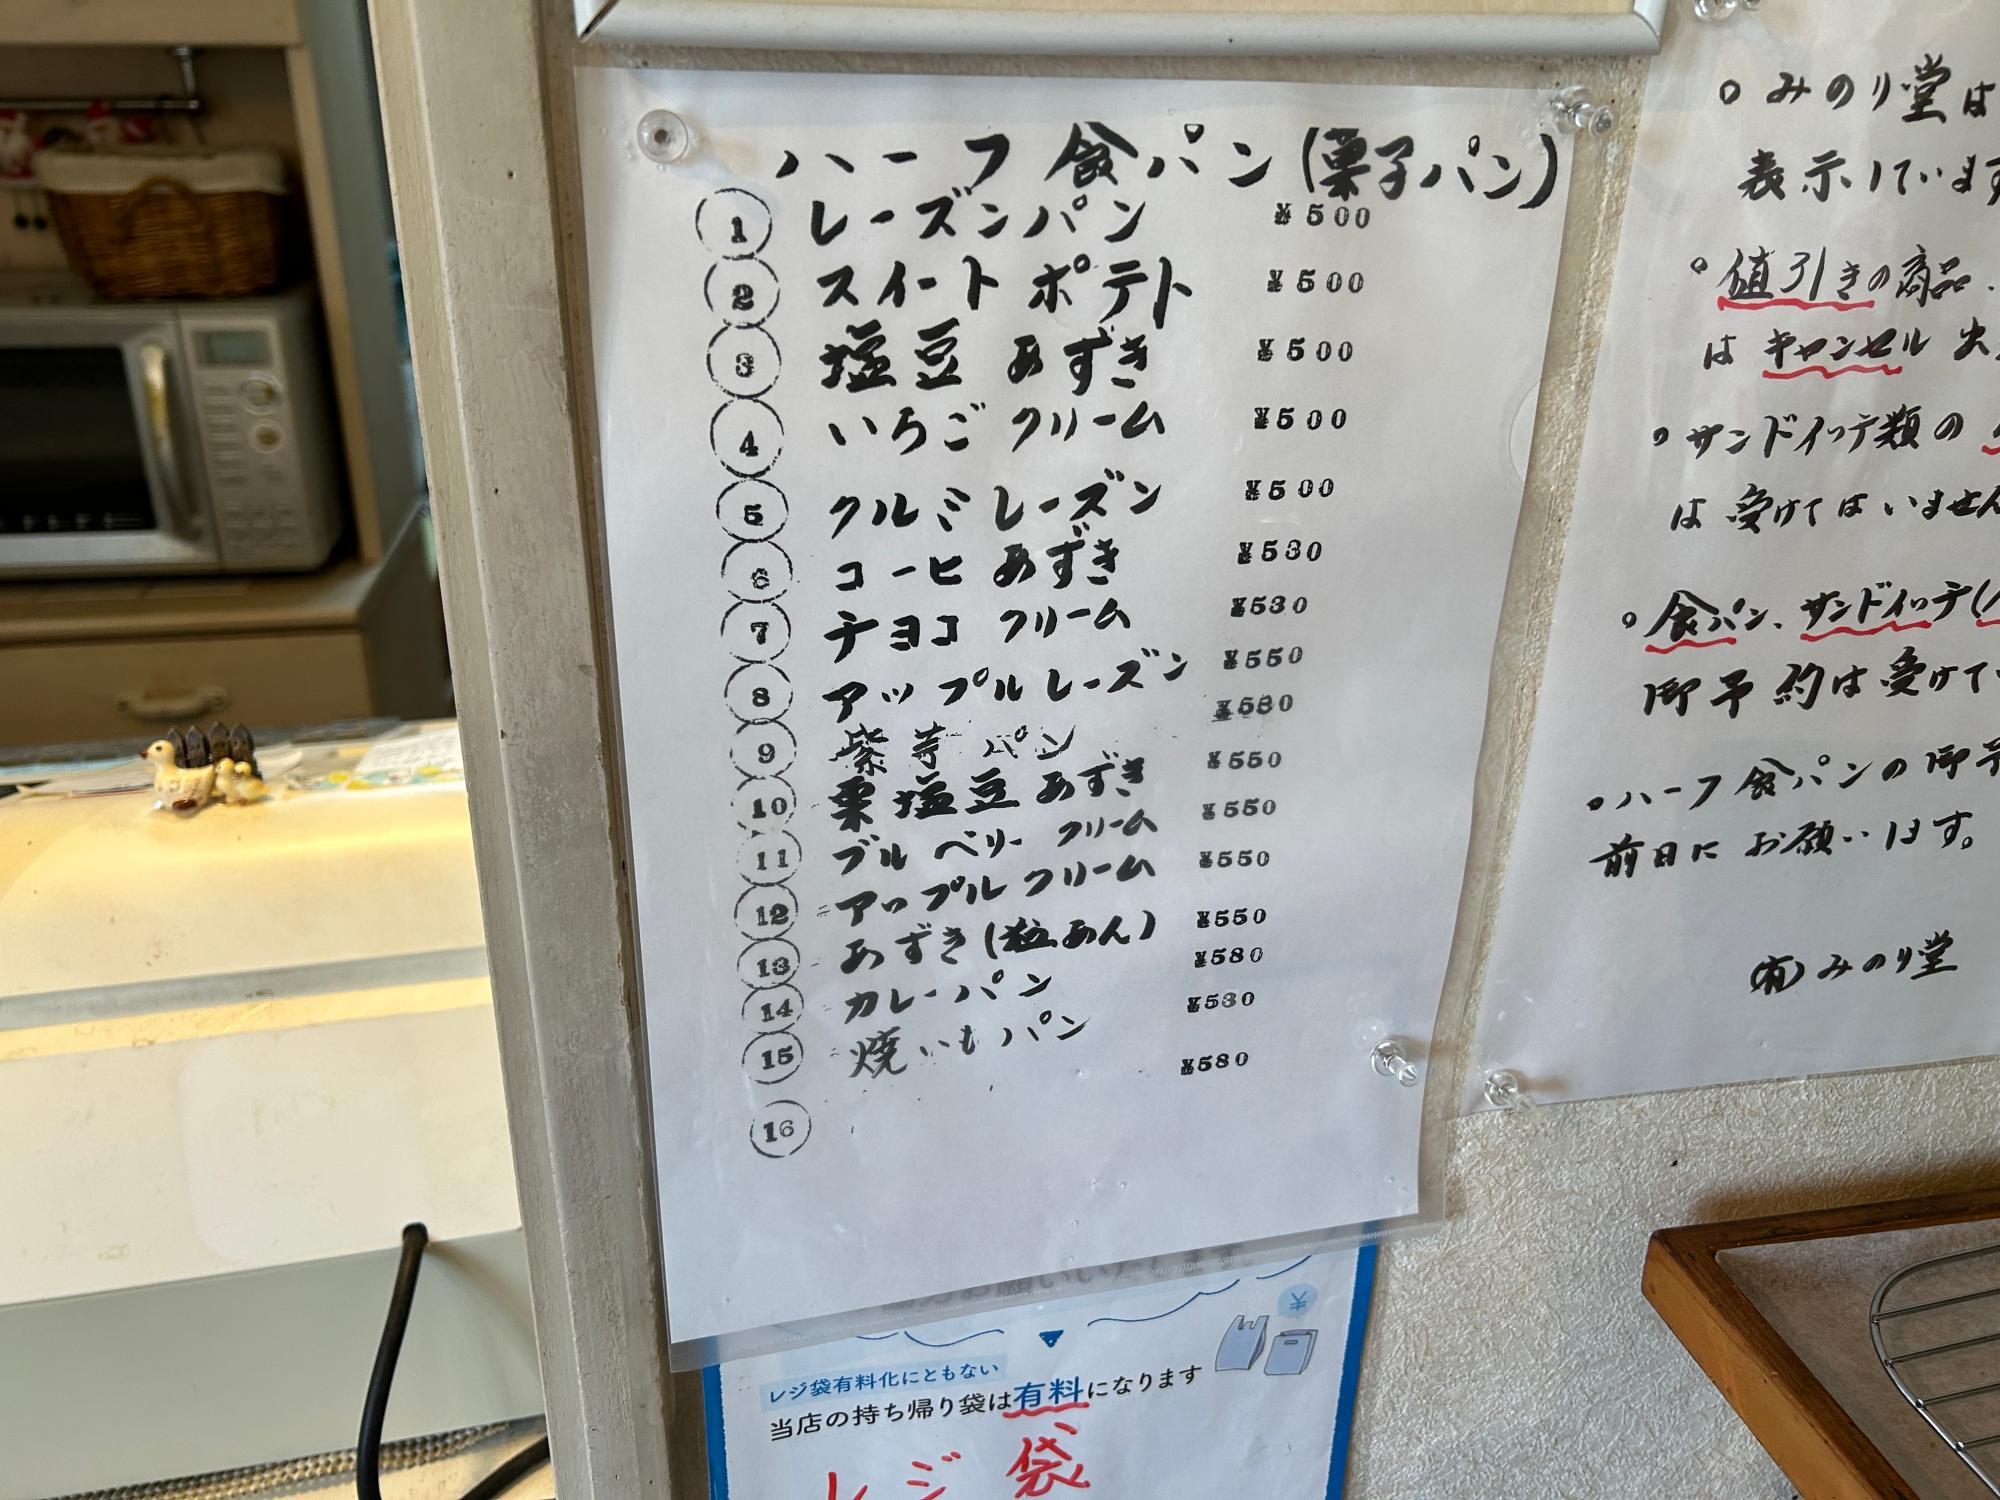 ハーフ食パン(菓子パン)
① レーズンパン ¥500
② スイートポテト ¥500
③ 塩豆あずき ¥500
④ いちごクリーム ¥500
⑤ クルミレーズン ¥500
⑥ コーヒあずき ¥530
⑦ チョコクリーム ¥530
⑧ アップルレーズン ¥550
⑨ 紫芋パン ¥580
⑩ 栗塩豆あずき ¥550
⑪ ブルベリークリーム ¥550
⑫ アップルクリーム ¥550
⑬ あずき(粒あん) ¥550
⑭ カレーパン ¥580
⑮ 焼いもパン ¥530
⑯ ¥580
。みのり堂は
表示しています
。値引きの商品、
はキャンセル出
。サンドイッチ類の
は受けてはいません
。食パン、サンドイッチ(
御予約は受けて
。ハーフ食パンの御予
前日にお願います。
(有)みのり堂
レジ袋有料化にともない
当店の持ち帰り袋は有料になります
レジ袋